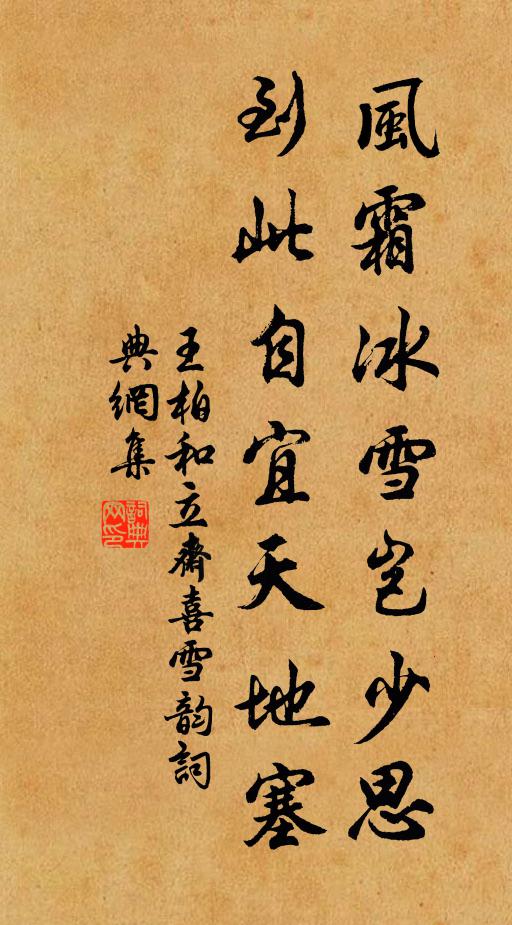 風霜冰雪岂少思
到此自宜天地塞
王柏和立齋喜雪韵詞
典網集
詞典網印